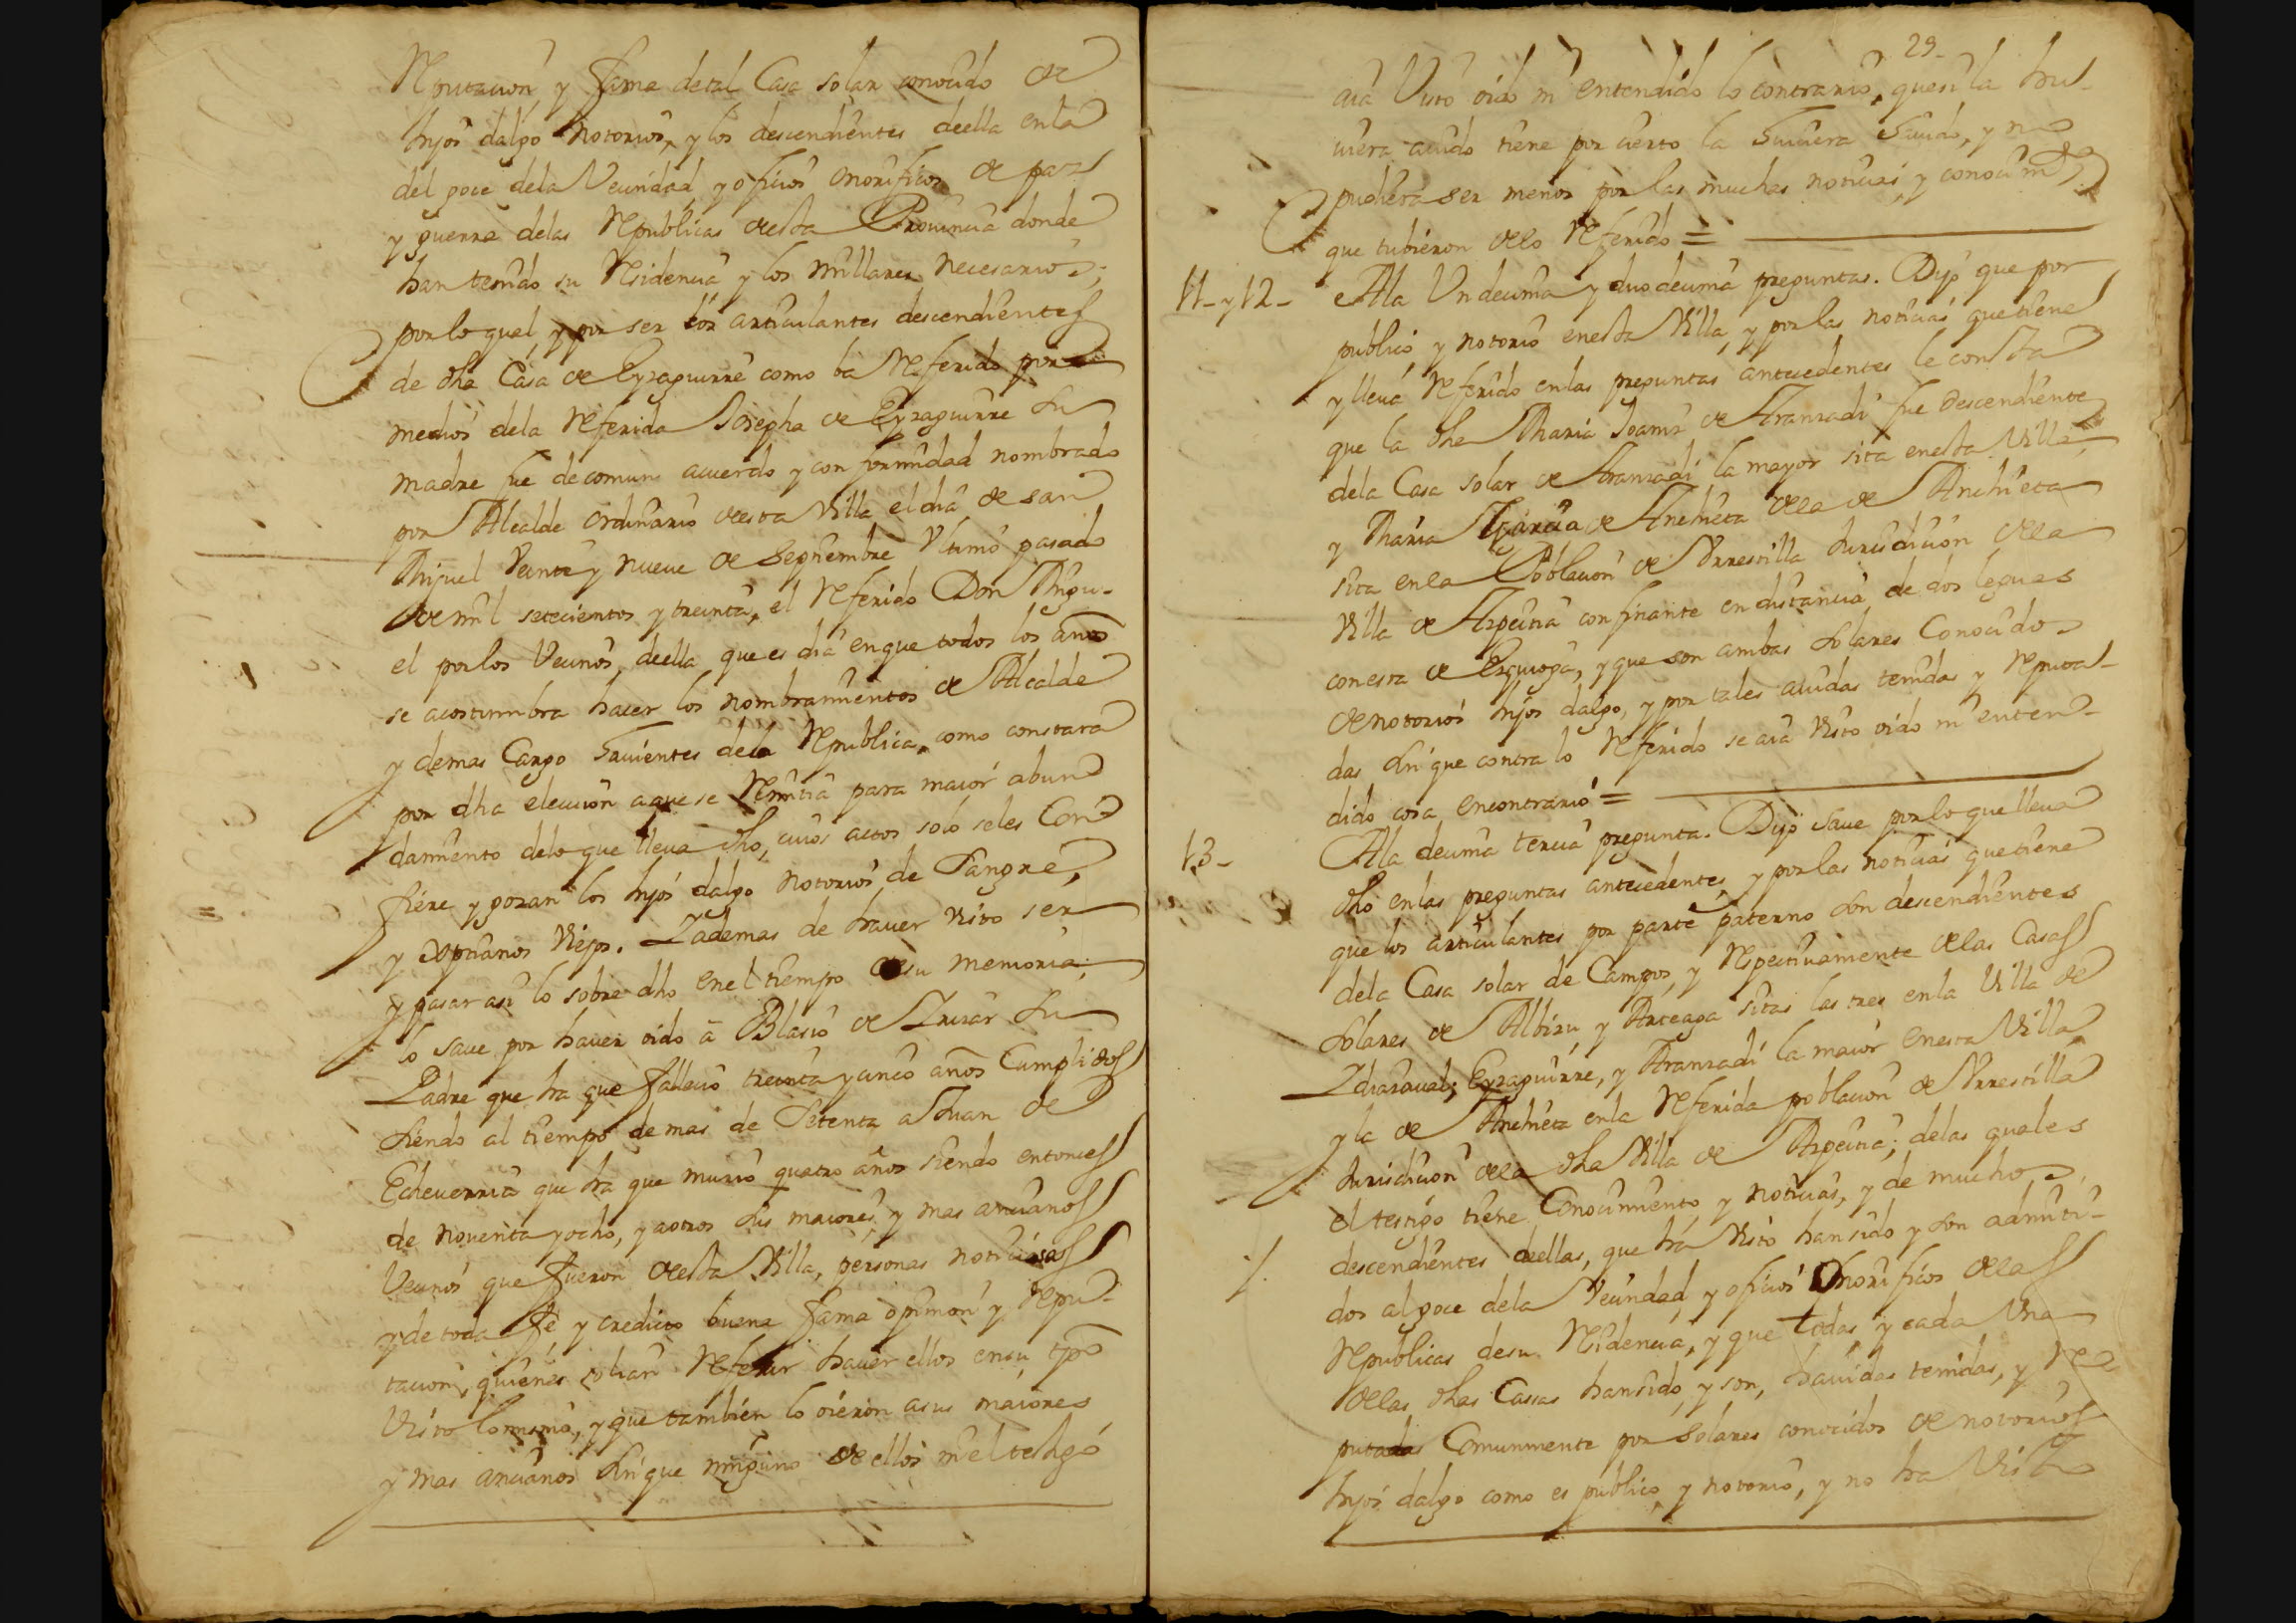 Reputacion y fama de tal Casa solar conocido de
hijos dalgo notorios, y los descendientes de ella en la
del goce dela Vecindad y oficios onorificos de paz
y guerra delas Republicas desta Provincia donde
han tenido su Residencia y los millares necesarios;
por lo qual, y por ser los articulantes descendientes
de dha Casa de Eyzaguirre como ba Referido por
medios dela Referida Josepha de Eyzaguirre su
madre fue de comun acuerdo y conformidad nombrado
por Alcalde ordinario desta Villa el dia de san
Miguel Veinte y nueve de Septiembre Ultimo pasado
de mil setecientos y treinta, el Referido Don Migu-
el por los Vecinos deella que es dia en que todos los años
se acostumbra hacer los nombramientos de Alcalde
y demas Cargo havientes dela Republica, como constara
por dha eleccion a que se Remitia para maior abun
damiento delo que lleva dho, cuios actos solo seles Con
fiere y gozan los hijos dalgo notorios de Sangre,
y Xptianos Viejos. Y ademas de haver visto ser
y pasar asi lo sobre dho en el tiempo de su memoria,
lo save por haver oido a Blasio de Yrizar su
Padre que ha que fallecio treinta y cinco años Cumplidos
siendo al tiempo de mas de Setenta a Juan de
Echeverria que ha que murio quatro años siendo entonces
de noventa y ocho, y a otros sus maiores y mas ancianos
Vecinos que fueron desta Villa, personas noticiosas
y de toda fe y credito buena fama opinion y Repu-
tacion, quienes solian Referir haver ellos en su tpo
Visto lo mismo, y que tambien lo oieron a sus maiores
y mas ancianos sin que ninguno de ellos ni el testigo
29-
aia Visto oido ni entendido lo contrario, que si la hu-
viera avido tiene por cierto la huviera Savido, y no
pudiera ser menos por las muchas noticias y conocimtos
que tubieron delo Referido =
11- y 12- Ala Undecima y duodecima preguntas. Dijo que por
publico y notorio enesta Villa, y por las noticias que tiene
y lleva Referido en las preguntas antecedentes le consta
que la dha Maria Joaniz de Aranzadi fue descendiente
dela Casa solar de Aranzadi la mayor sita enesta Villa,
y Maria Garcia de Anchieta dela de Anchieta
sita en la Poblacion de Urrestilla Jurisdicion dela
Villa de Azpeitia confinante en distancia de dos leguas
con esta de Ezquioga, y que son ambas solares Conocidos
de notorios hijos dalgo, y por tales avidas tenidas y Reputa-
das sin que contra lo Referido se aia visto oido ni enten-
dido cosa en contrario =
13- Ala decima tercia pregunta. Dijo save por lo que lleva
dho en las preguntas antecedentes, y por las noticias que tiene
que los articulantes por parte paterno son descendientes
dela Casa solar de Campos, y Respectivamente delas Casas
solares de Albizu y Arteaga sitas las tres en la Villa de
Ydiazaval; Eyzaguirre, y Aranzadi la maior enesta Villa,
y la de Anchieta en la Referida poblacion de Urrestilla
Jurisdicion dela dha Villa de Azpeitia; delas quales
el testigo tiene Conocimiento y noticias, y de muchos
descendientes deellas, que ha visto han sido y son admiti-
dos al goce dela Vecindad y oficios Onorificos delas
Republicas desu Residencia, y que todas y cada Una
delas dhas Cassas han sido, y son, havidas tenidas, y Re-
putadas Comunmente por solares conocidos de notorios
hijos dalgo como es publico, y notorio, y no ha Visto